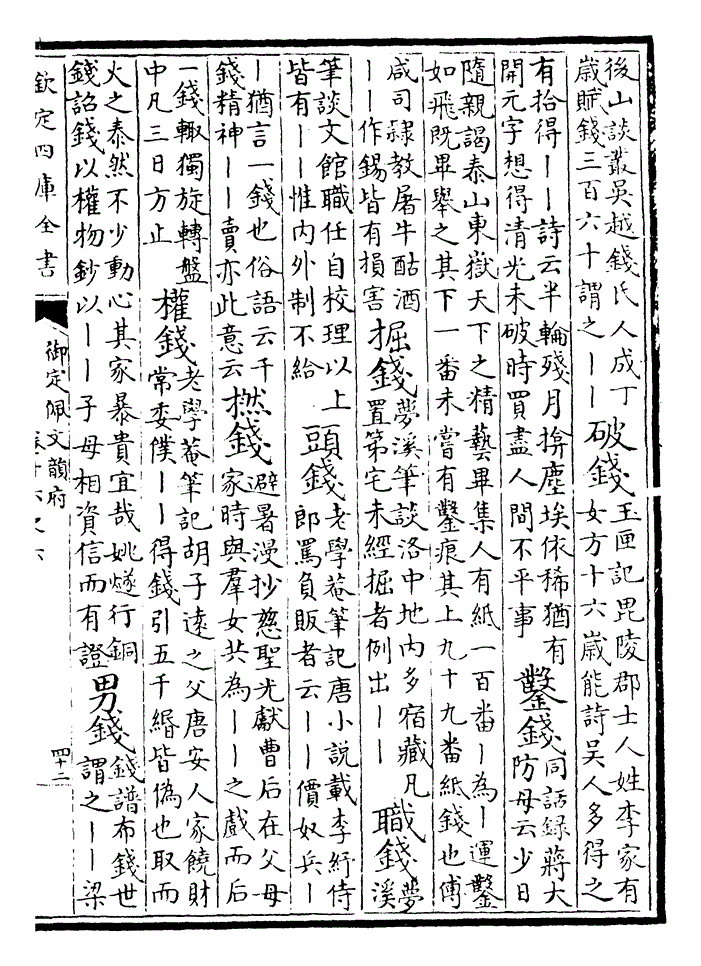 後山談叢吳越錢氏人成丁
歲賦錢三百六十謂之丨丨
破錢
玉匣記毘陵郡士人姓李家有
女方十六歲能詩吳人多得之
有拾得丨丨詩云半輪殘月掩塵埃依稀猶有
開元字想得清光未破時買盡人間不平事
鑿錢
同話錄蔣大
防母云少日
隨親謁泰山東嶽天下之精藝畢集人有紙一百番丨為丨運鑿
如飛既畢舉之其下一番未嘗有鑿痕其上九十九番紙錢也傅
咸司隸教屠牛酤酒
丨丨作錫皆有損害
掘錢
夢溪筆談洛中地内多宿藏凡
置第宅未經掘者例出丨丨
職錢
夢
溪
筆談文館職任自校理以上
皆有丨丨惟内外制不給
頭錢
老學菴筆記唐小説載李紓侍
郎罵負販者云丨丨價奴兵丨
丨猶言一錢也俗語云千
錢精神丨丨賣亦此意云
撚錢
避暑漫抄慈聖光獻曹后在父母
家時與羣女共為丨丨之戲而后
一錢輙獨旋轉盤
中凡三日方止
權錢
老學菴筆記胡子遠之父唐安人家饒財
常委僕丨丨得錢引五千緡皆偽也取而
火之泰然不少動心其家暴貴宜哉姚燧行銅
錢詔錢以權物鈔以丨丨子母相資信而有證
男錢
錢譜布錢世
謂之丨丨梁
欽定四庫全書
御定佩文韻府
卷十六之六
四十二